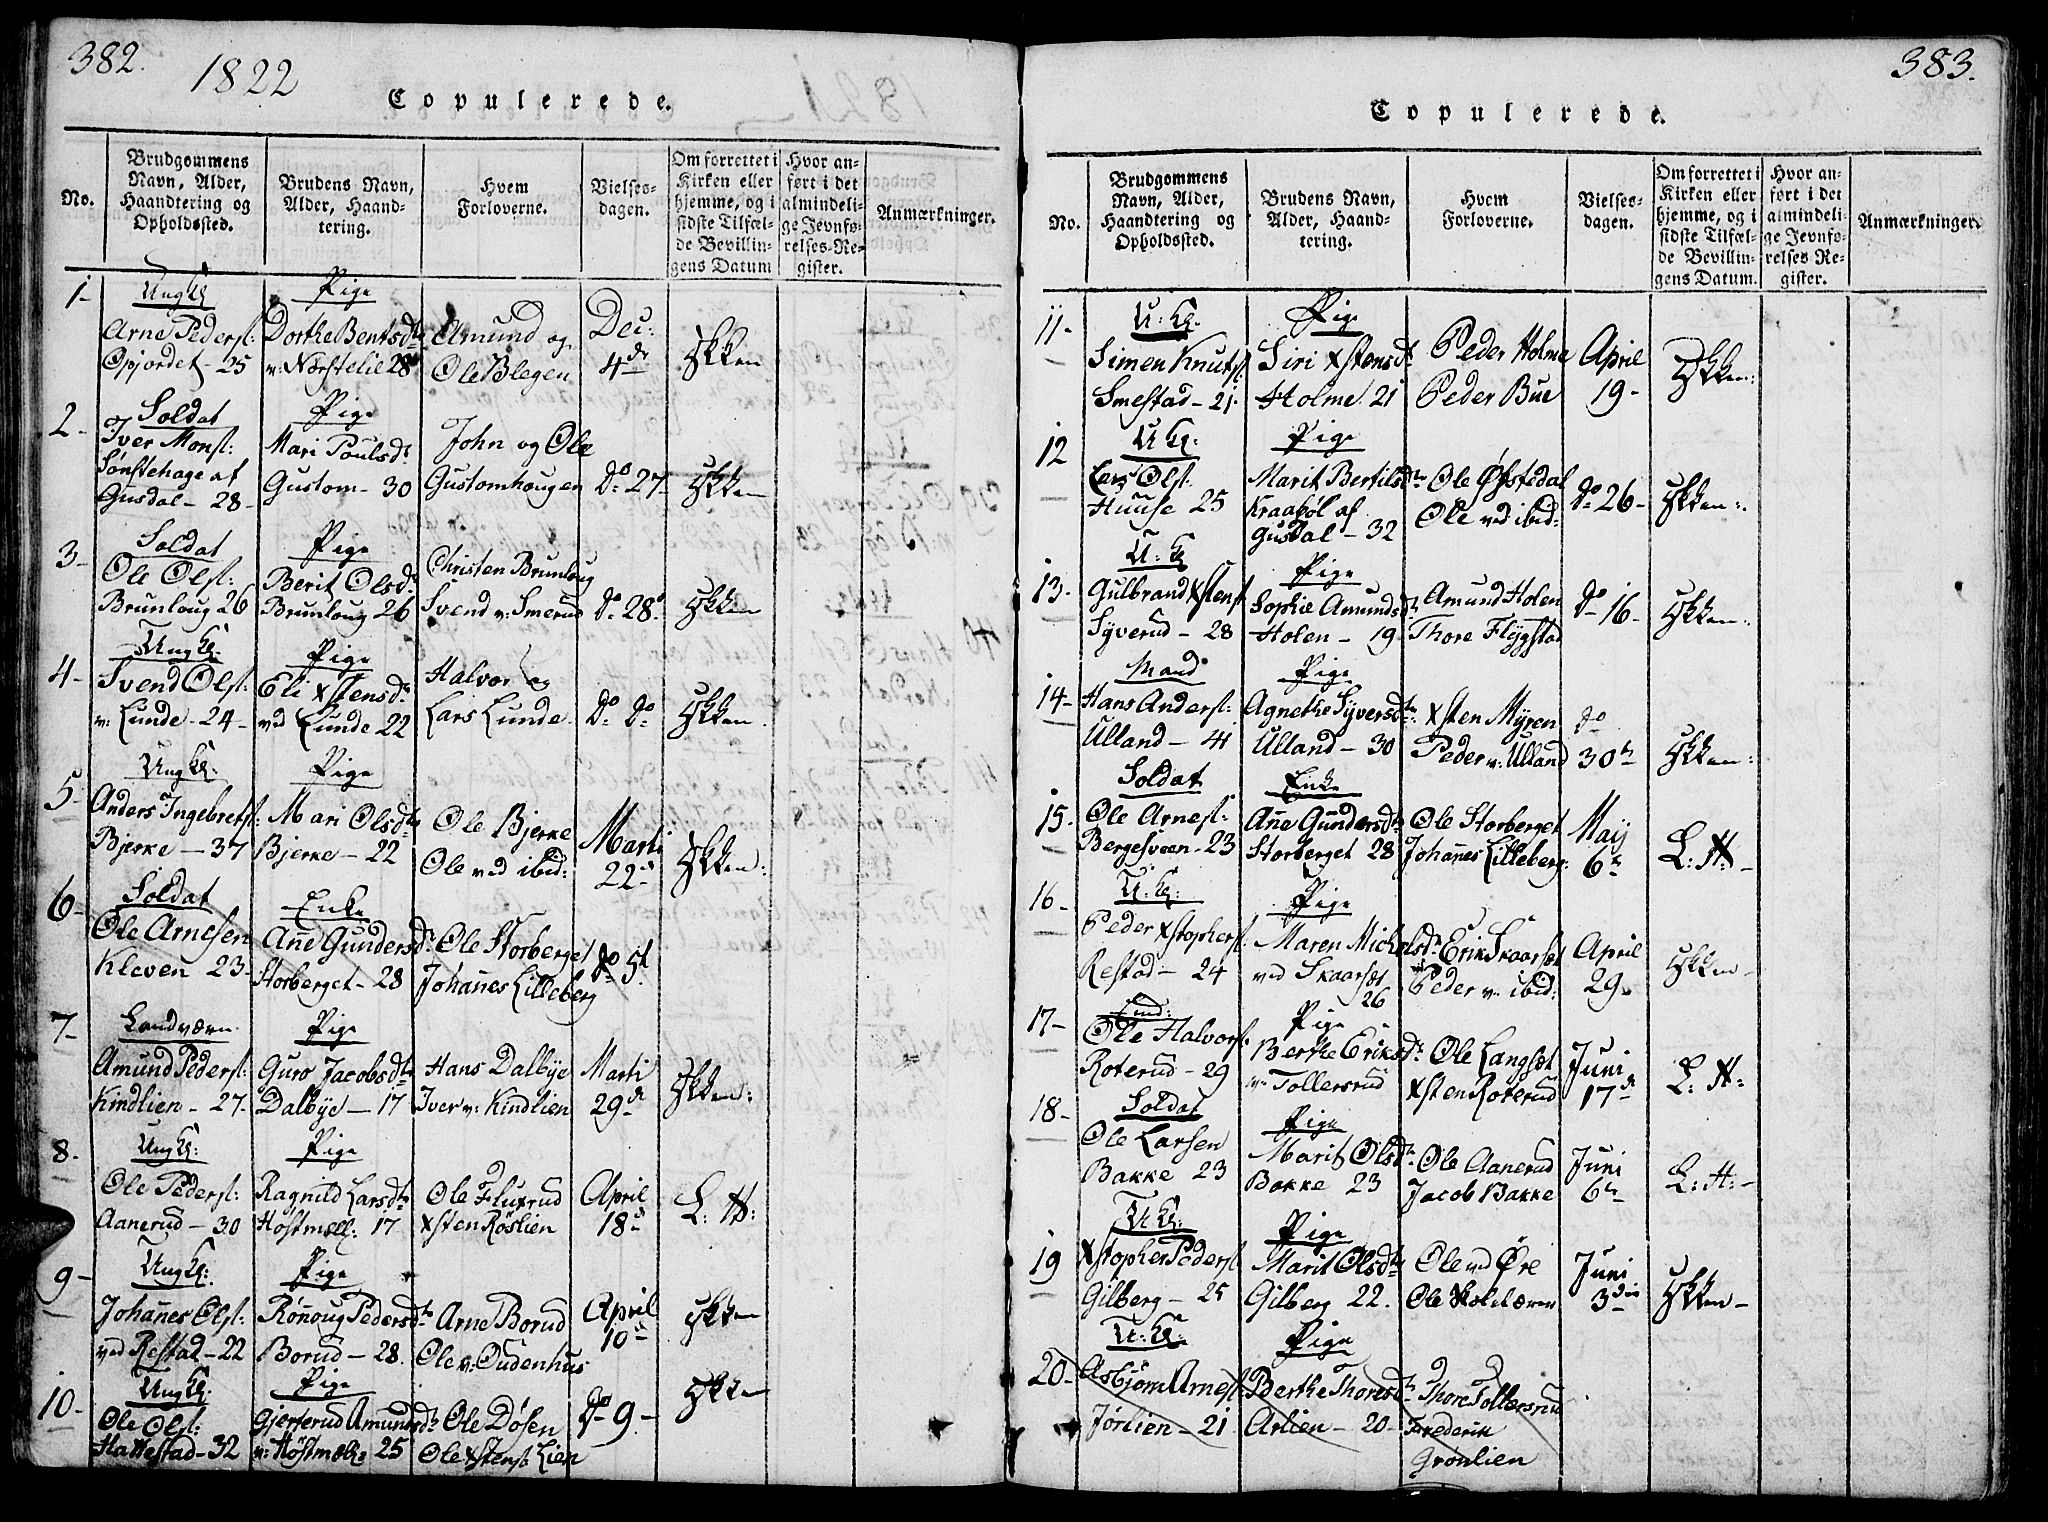 382.
1822
Copulerede.
No.
Brudgommens Navn, Alder, Haandtering og Opholdssted.
Brudens Navn, Alder, Haandtering.
Hvem Forloverne.
Vielsesdagen.
Om forrettet i Kirken eller hjemme, og i sidste Tilfælde Bevillingens Datum
Hvor anført i det almindelige Jevnførelses-Register.
Anmærkninger.
1-
Ungk:
Arne Pedersl:
Opjordet - 25
Pige
Dorthe Bentsdr
v: Nørstelie 28
Amund og
Ole Blegen
Dec:
4de
2-
Soldat
Iver Monsl:
Sønstehage af
Gusdal - 28 -
Pige
Mari Poulsdr
Gustom - 30
John og Ole
Gustomhougen
Do 27-
3-
Soldat
Ole Olsl:
Brunloug 26
Pige
Berit Olsdr
Brunloug 26
Christen Brunloug
Svend v: Smerud
Do 28.
4-
Ungk:
Svend Olsl:
v: Lunde - 24 -
Pige
Eli Xstensdr
ved Lunde 22
Halvor og
Lars Lunde
Do Do
5-
Ungk:
Anders Ingebretsl:
Bjerke - 37
Pige
Mari Olsdr
Bjerke - 22
Ole Bjerke
Ole ved ibid:
Marti
22
6-
Soldat
Ole Arnesen
Kleven 23 -
Enke
Anne Gundersdr
Storberget - 28
Ole Storberget
Johannes Lilleberg
Do 5t.
7-
Landværn
Amund Pedersl:
Kindlien - 27 -
Pige
Guro Jacobsdr
Dalbye - 17
Hans Dalbye
Iver v: Kindlien
Marti
29
8.
Ungk:
Ole Pedersl:
Aanerud - 30
Pige
Ragnild Larsdr
Høstmæll: 17
Ole Fluxrud
Xsten Røslien
April
18
L: H:
9-
Ungk:
Johannes Olsl:
ved Restad - 22
Pige
Rønnoug Pedersdr
Borud - 28.
Arne Borud
Ole v: Oudenhus
April
10
10-
Ungk:
Ole Olsl:
Hattestad - 32
Pige
Gjerterud Amundsdr
v: Høstmæl: 25
Ole Døsen
Ole Xstensl: Lien
Do 9 -
383.
Copulerede.
No.
Brudgommens Navn, Alder, Haandtering og Opholdssted.
Brudens Navn, Alder, Haandtering.
Hvem Forloverne.
Vielsesdagen.
Om forrettet i Kirken eller hjemme, og i sidste Tilfælde Bevillingens Datum.
Hvor anført i det almindelige Jevnførelses Register.
Anmærkninger.
11-
U: K:
Simen Knutsl:
Smestad - 21.
Pige
Siri Xstensdr
Holme 21
Peder Holme
Peder Bue
April
19 -
12
U K:
Lars Olsl:
Huuse 25
Pige
Marit Bertilsdr
Kraabøl af
Gusdal - 32
Ole Øfstedal
Ole ved ibid:
Do 26 -
13-
U: K
Gulbrand Xstensl
Syverud - 28
Pige
Sophie Amundsdr
Holen - 19
Amund Holen
Thore Flygstad
Do 16 -
14-
Mand
Hans Andersl:
Ulland - 41
Pige
Agnethe Syversdr
Ulland - 30
Xsten Myren
Peder v: Ulland
Do
30te
15-
Soldat
Ole Arnesl:
Bergesveen - 23
Enke
Anne Gundersdr
Storberget 28
Ole Storberget
Johannes Lilleberg:
Maij
6te
L: H: -
16 -
U: K:
Peder Xstophersl:
Restad - 24
Pige
Maren Michelsdr
ved Skaarset
26
Erik Skaarset
Peder v: ibid:
April
29.
17-
Ole Halvorsl:
Roterud - 29
Pige
Berthe Eriksdr
v: Tollersrud
Ole Langset
Xsten Roterud
Juni
17
L: H:
18-
Soldat
Ole Larsen
Bakke 23
Pige
Marit Olsdr
Bakke 23
Ole Aanerud
Jacob Bakke
Juni
6te
L: H: -
19
U: K:
Xstopher Pedersl:
Gilberg - 25
Pige
Marit Olsdr
Gilberg 22.
Ole ved Øre
Ole
Juni
3die
20-
U: K:
Asbjørn Arnesl
Jørlien - 21
Pige
Berthe Thoresdr
Aslien - 20 -
Thore Tollersrud
Frederik
Grønlien